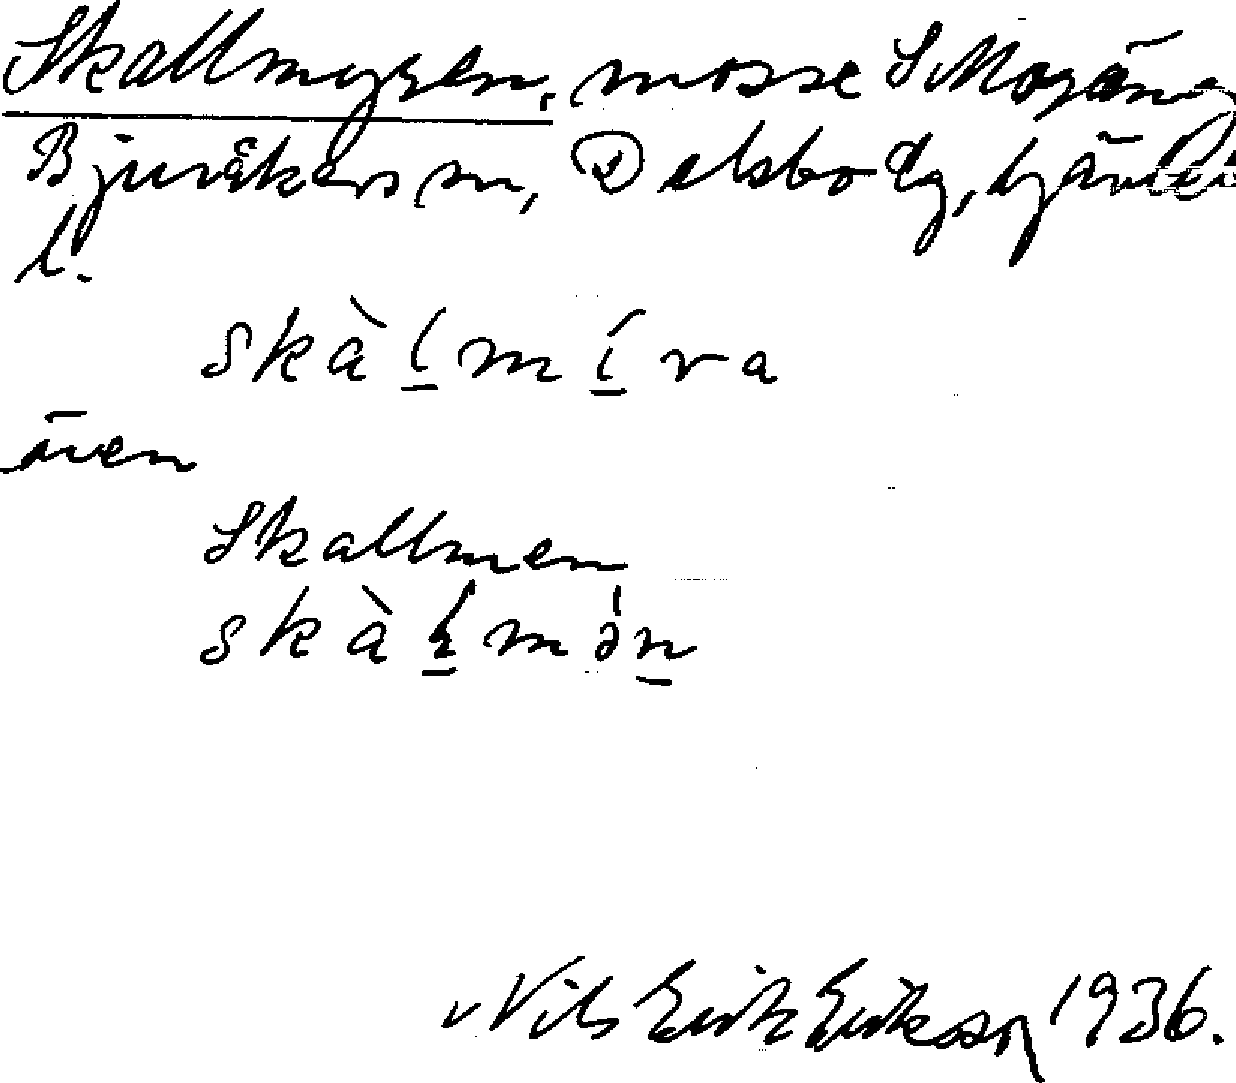 Skallmyren, mosse S Moäng
Bjuråkers sn, Delsbo tg, Gävle
l.
skàl̲mí̲ra
även
Skallmen
skàl̲mən̲
Nils Erik Erikson 1936.